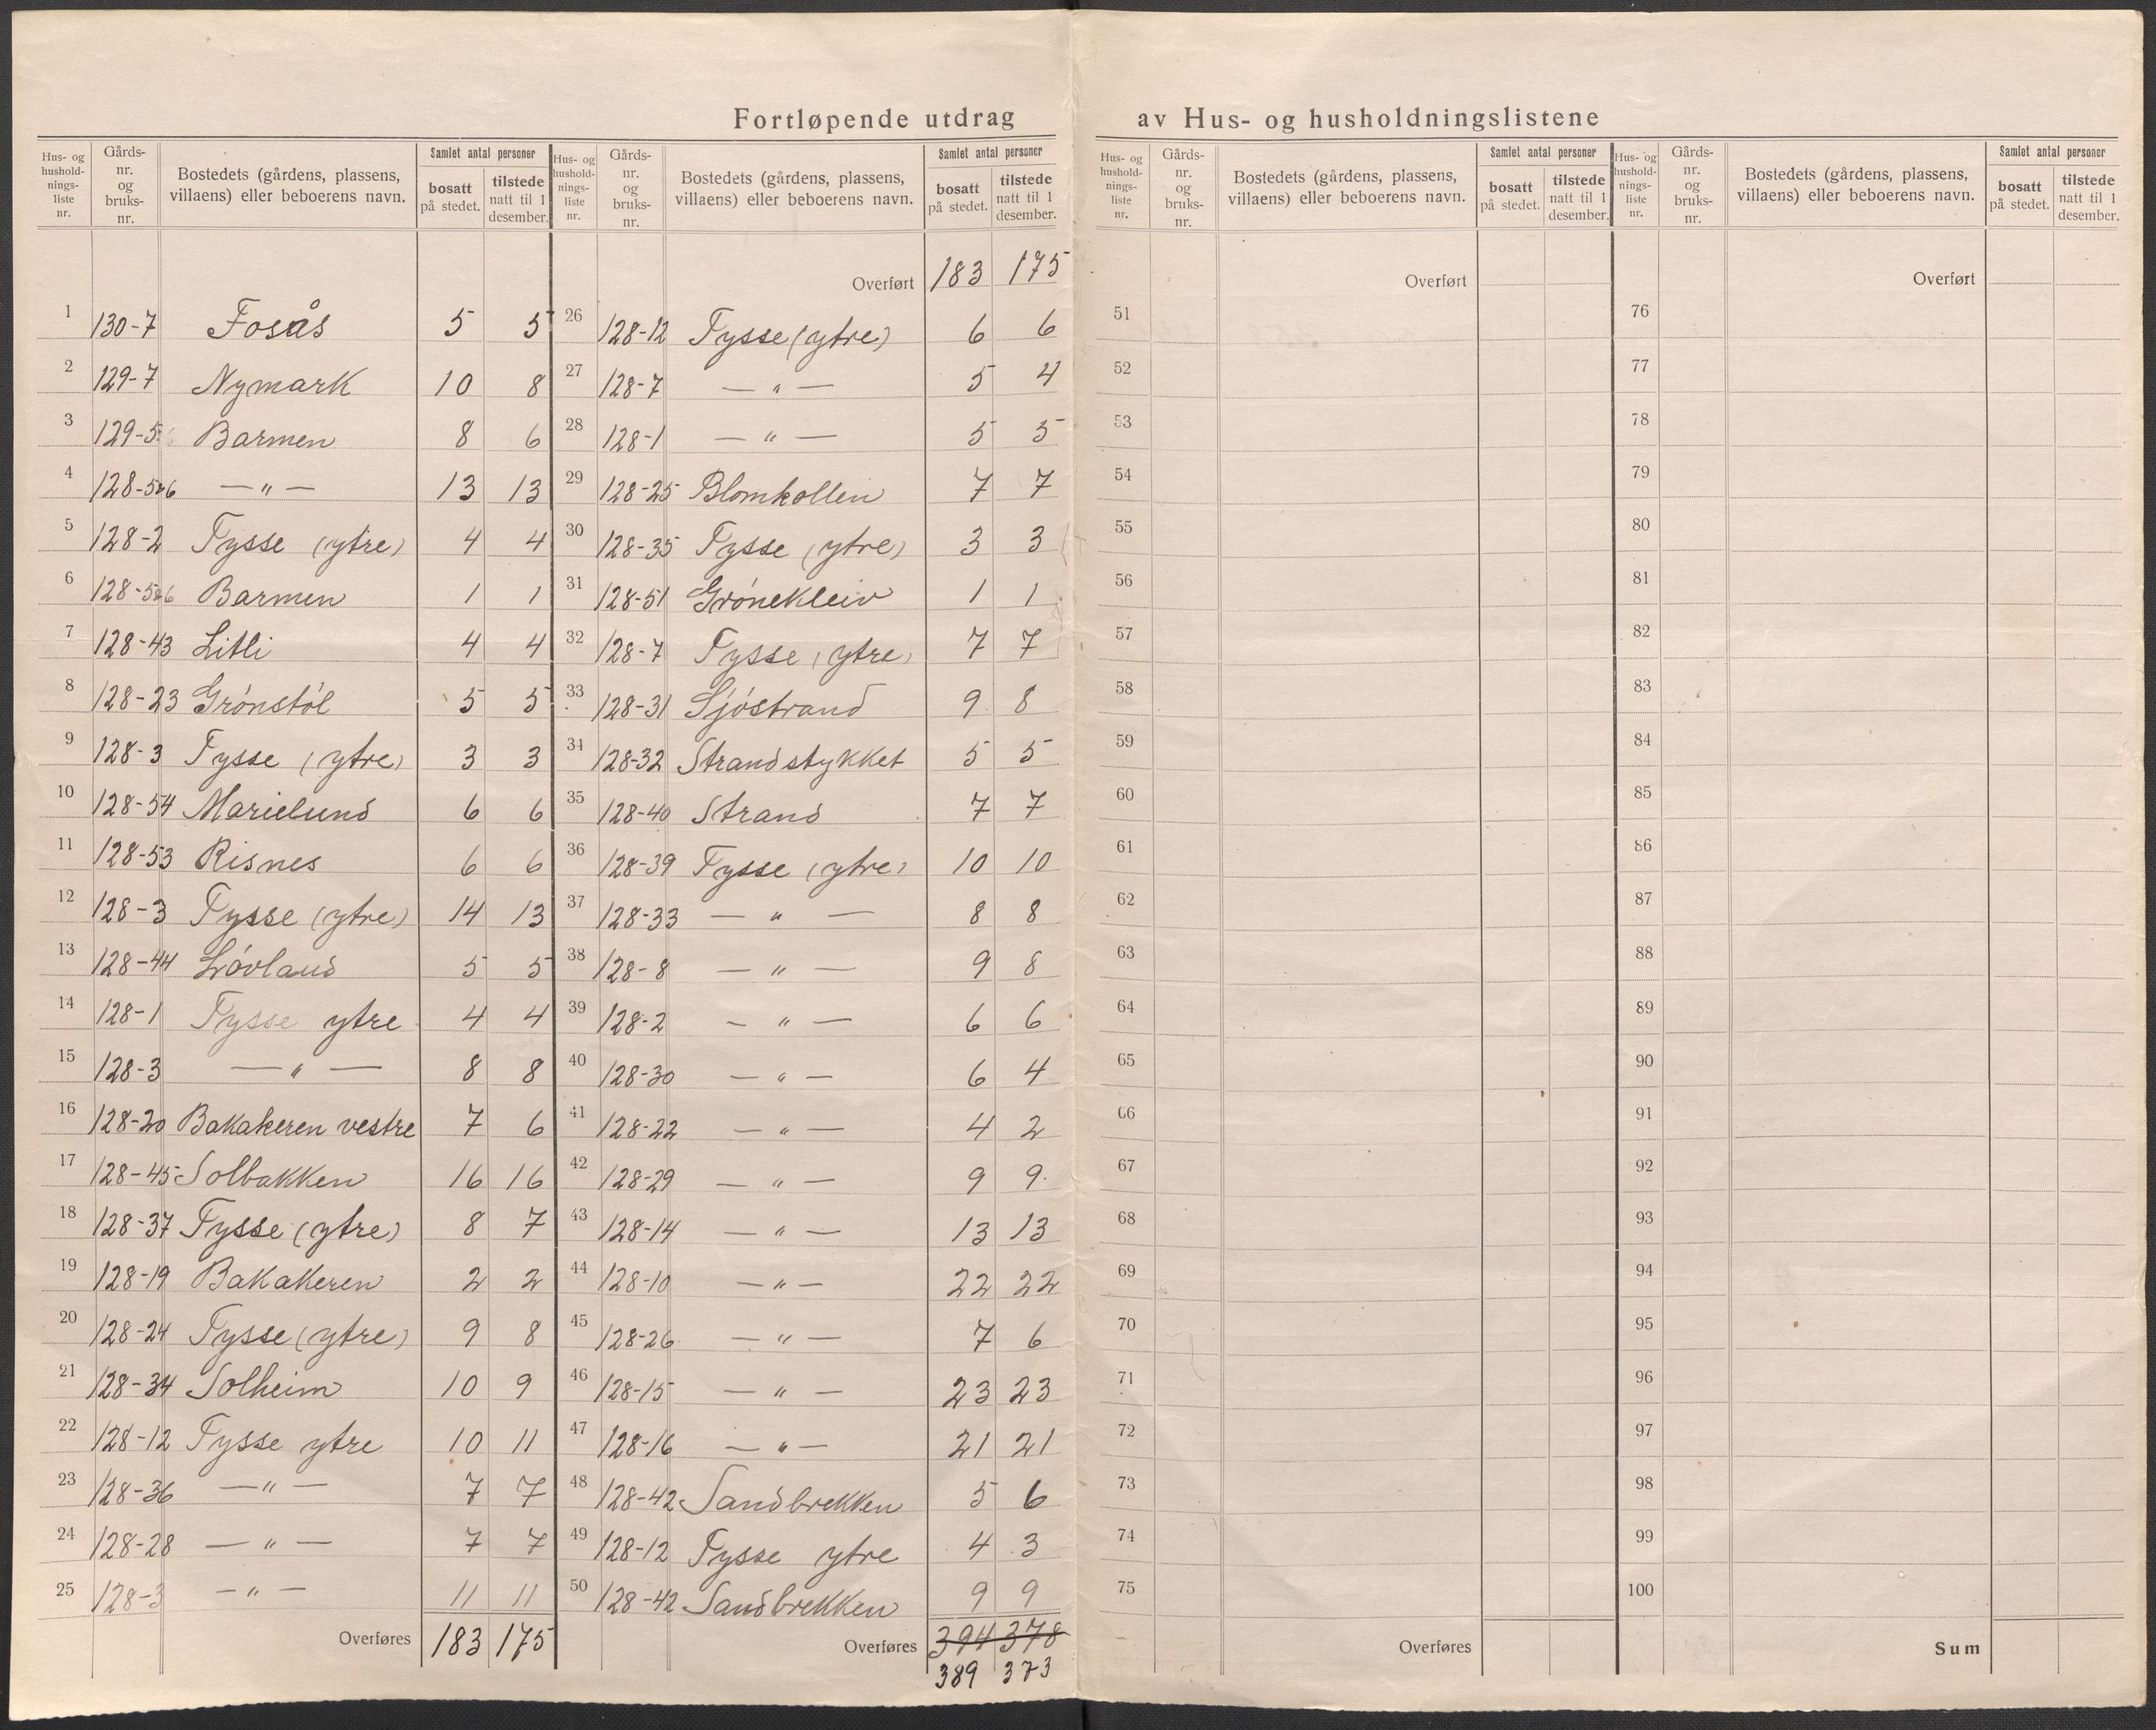 Fortløpende utdrag av Hus- og husholdningslistene
Hus- og hushold- nings- liste nr. | Gårds- nr. og bruks- nr. | Bostedets (gårdens, plassens, villaens) eller beboerens navn. | Samlet antal personer | bosatt på stedet. | tilstede natt til 1 desember.
1 130-7 Fosås 5 5
2 129-7 Nymark 10 8
3 129-5 Barmen 8 6
4 128-5og6 — " — 13 13
5 128-2 Tysse (ytre) 4 4
6 128-5og6 Barmen 1 1
7 128-43 Litli 4 4
8 128-23 Grónstól 5 5
9 128-3 Tysse (ytre) 3 3
10 128-54 Marielund 6 6
11 128-53 Risnes 6 6
12 128-3 Tysse (ytre) 14 13
13 128-44 Lóvland 5 5
14 128-1 Tysse ytre 4 4
15 128-3 — " — 8 8
16 128-20 Bakakeren vestre 7 6
17 128-45 Solbakken 16 16
18 128-37 Tysse (ytre) 8 7
19 128-19 Bakakeren 2 2
20 128-24 Tysse (ytre) 9 8
21 128-34 Solheim 10 9
22 128-12 Tysse ytre 10 11
23 128-36 — " — 7 7
24 128-28 — " — 7 7
25 128-3 — " — 11 11
Overføres 183 175
Hus- og hushold- nings- liste nr. | Gårds- nr. og bruks- nr. | Bostedets (gårdens, plassens, villaens) eller beboerens navn. | Samlet antal personer | bosatt på stedet. | tilstede natt til 1 desember.
Overført 183 175
26 128-12 Tysse (ytre) 6 6
27 128-7 — " — 5 4
28 128-1 — " — 5 5
29 128-25 Blomkollen 7 7
30 128-35 Tysse (ytre) 3 3
31 128-51 Grónekleiv 1 1
32 128-7 Tysse (ytre) 7 7
33 128-31 Sjóstrand 9 8
34 128-32 Strandstykket 5 5
35 128-40 Strand 7 7
36 128-39 Tysse (ytre) 10 10
37 128-33 — " — 8 8
38 128-8 — " — 9 8
39 128-2 — " — 6 6
40 128-30 — " — 6 4
41 128-22 — " — 4 2
42 128-29 — " — 9 9
43 128-14 — " — 13 13
44 128-10 — " — 22 22
45 128-26 — " — 7 6
46 128-15 — " — 23 23
47 128-16 — " — 21 21
48 128-42 Sandbrekken 5 6
49 128-12 Tysse ytre 4 3
50 128-42 Sandbrekken 9 9
Overføres 394 378
389 373
Hus- og hushold- nings- liste nr. | Gårds- nr. og bruks- nr. | Bostedets (gårdens, plassens, villaens) eller beboerens navn. | Samlet antal personer | bosatt på stedet. | tilstede natt til 1 desember.
Overført
51
52
53
54
55
56
57
58
59
60
61
62
63
64
65
66
67
68
69
70
71
72
73
74
75
Overføres
Hus- og hushold- nings- liste nr. | Gårds- nr. og bruks- nr. | Bostedets (gårdens, plassens, villaens) eller beboerens navn. | Samlet antal personer | bosatt på stedet. | tilstede natt til 1 desember.
Overført
76
77
78
79
80
81
82
83
84
85
86
87
88
89
90
91
92
93
94
95
96
97
98
99
100
Sum